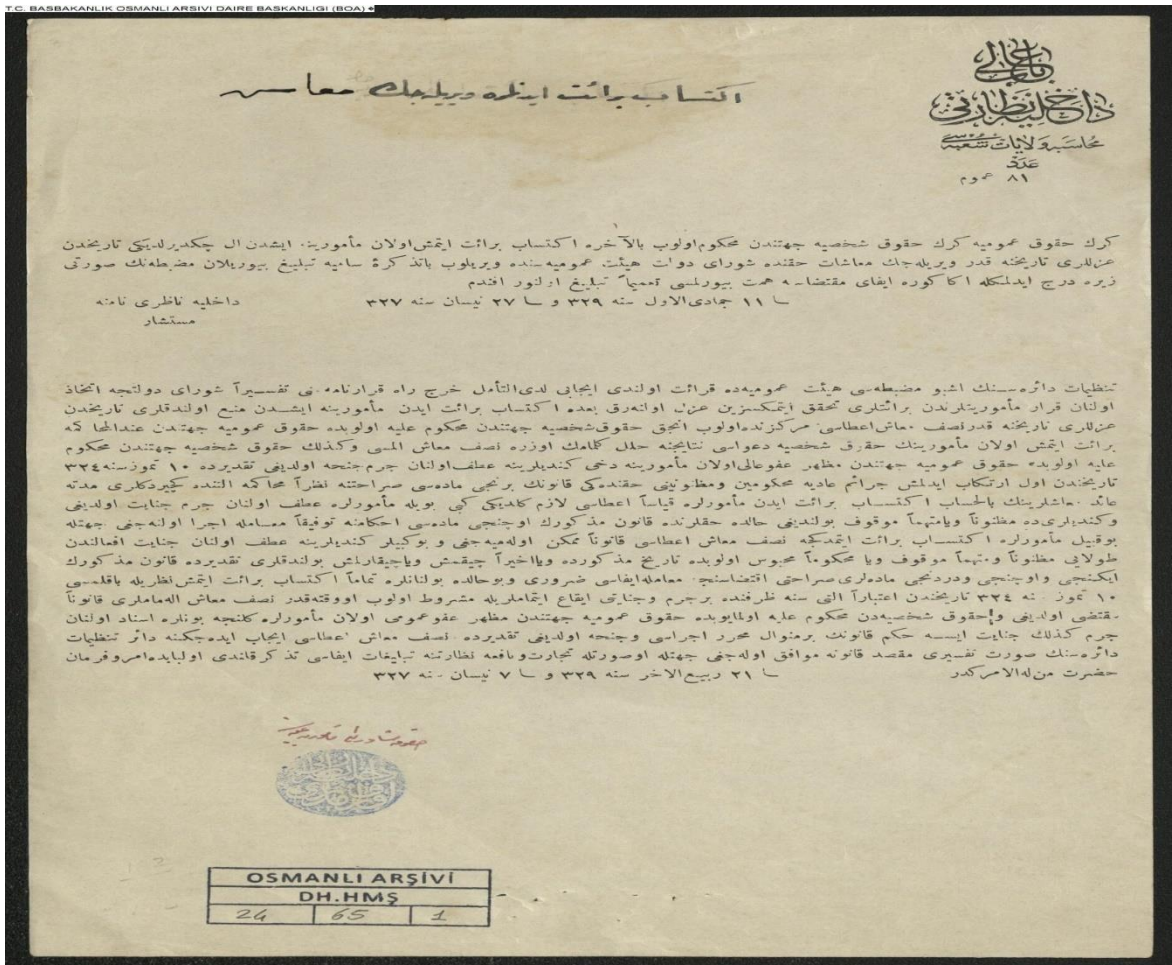 T.C. BASBAKANLIK OSMANLI ARSIVI DAIRE BASKANLIGI (BOA)
باب عالی
داخلیه نظارتی
محاسبه ولایات شعبه سی
عدد
٨١ عموم
اكتساب برائت ایدنلره ویریله جك معاش
كرك حقوق عمومیه كرك حقوق شخصیه جهتندن محكوم اولوب بالآخره اكتساب برائت ایتمش اولان مأمورینه ایشدن ال چكدیرلدیكی تاریخدن
عزللری تاریخنه قدر ویریله جك معاشات حقنده شورای دولت هیئت عمومیه سنده ویریلوب باتذكرهٔ سامیه تبلیغ بیوریلان مضبطه نك صورتی
زیره درج ایدلمكله اكا كوره ایفای مقتضاسنه همت بیورلمسی تعمیماً تبلیغ اولنور افندم
فی ١١ جمادی الاول سنه ٣٢٩ و فی ٢٧ نیسان سنه ٣٢٧
داخلیه ناظری نامنه
مستشار
تنظیمات دائره سنك اشبو مضبطه سی هیئت عمومیه ده قرائت اولندی ایجابی لدی التأمل خرج راه قرارنامه سنی تفسیراً شورای دولتجه اتخاذ
اولنان قرار مأمورینلرندن برائتلری تحقق ایتمكسزین عزل اولنه رق بعده اكتساب برائت ایدن مأمورینه ایشدن منع اولندقلری تاریخدن
عزللری تاریخنه قدر نصف معاش اعطاسی مركزنده اولوب انجق حقوق شخصیه جهتندن محكوم علیه اولوبده حقوق عمومیه جهتندن عندالمحاكمه
برائت ایتمش اولان مأمورینك حقوق شخصیه دعواسی نتایجنه خلل كلمامك اوزره نصف معاش المسی وكذلك حقوق شخصیه جهتندن محكوم
علیه اولوبده حقوق عمومیه جهتندن مظهر عفو عالی اولان مأمورینه دخی كندیلرینه عطف اولنان جرم جنحه اولدیغی تقدیرده ١٠ تموز سنه ٣٢٤
تاریخندن اول ارتكاب ایدلمش جرائم عادیه محكومین ومظنونینی حقنده كی قانونك برنجی ماده سی صراحتنه نظراً محاكمه التنده كچیردكلری مدته
عائد معاشلرینك بالحساب اكتساب برائت ایدن مأمورلره قیاساً اعطاسی لازم كلدیكی كبی بویله مأمورلره عطف اولنان جرم جنایت اولدیغی
وكندیلری ده مظنوناً ویامتهماً موقوف بولندیغی حالده حقلرنده قانون مذكورك اوچنجی ماده سی احكامنه توفیقاً معامله اجرا اولنه جغی جهتله
بوقبیل مأمورلره اكتساب برائت ایتمدكجه نصف معاش اعطاسی قانوناً ممكن اوله میه جغی و بوكبیلر كندیلرینه عطف اولنان جنایت افعالندن
طولایی مظنوناً ومتهماً موقوف ویا محكوماً محبوس اولوبده تاریخ مذكورده ویااخیراً چیقمش ویاچیقارلمش بولندقلری تقدیرده قانون مذكورك
ایكنجی واوچنجی ودردنجی ماده لری صراحتی اقتضاسنجه معامله ایفاسی ضروری وبوحالده بولنانلره تماماً اكتساب برائت ایتمش نظریله باقلمسی
١٠ تموز سنه ٣٢٤ تاریخندن اعتباراً التی سنه ظرفنده برجرم وجنایتی ایقاع ایتماملریله مشروط اولوب اووقته قدر نصف معاش الماملری قانوناً
مقتضی اولدیغی وحقوق شخصیه دن محكوم علیه اولمایوبده حقوق عمومیه جهتندن مظهر عفو عمومی اولان مأمورلره كلنجه بونلره اسناد اولنان
جرم كذلك جنایت ایسه حكم قانونك برمنوال محرر اجراسی وجنحه اولدیغی تقدیرده نصف معاش اعطاسی ایجاب ایده جكنه دائر تنظیمات
دائره سنك صورت تفسیری مقصد قانونه موافق اوله جغی جهتله اوصورتله تجارت ونافعه نظارتنه تبلیغات ایفاسی تذكر قلندی اولبابده امر وفرمان
حضرت من له الامركدر
فی ٢١ ربیع الاخر سنه ٣٢٩ و فی ٧ نیسان سنه ٣٢٧
OSMANLI ARŞİVİ
DH.HMŞ
24 65 1